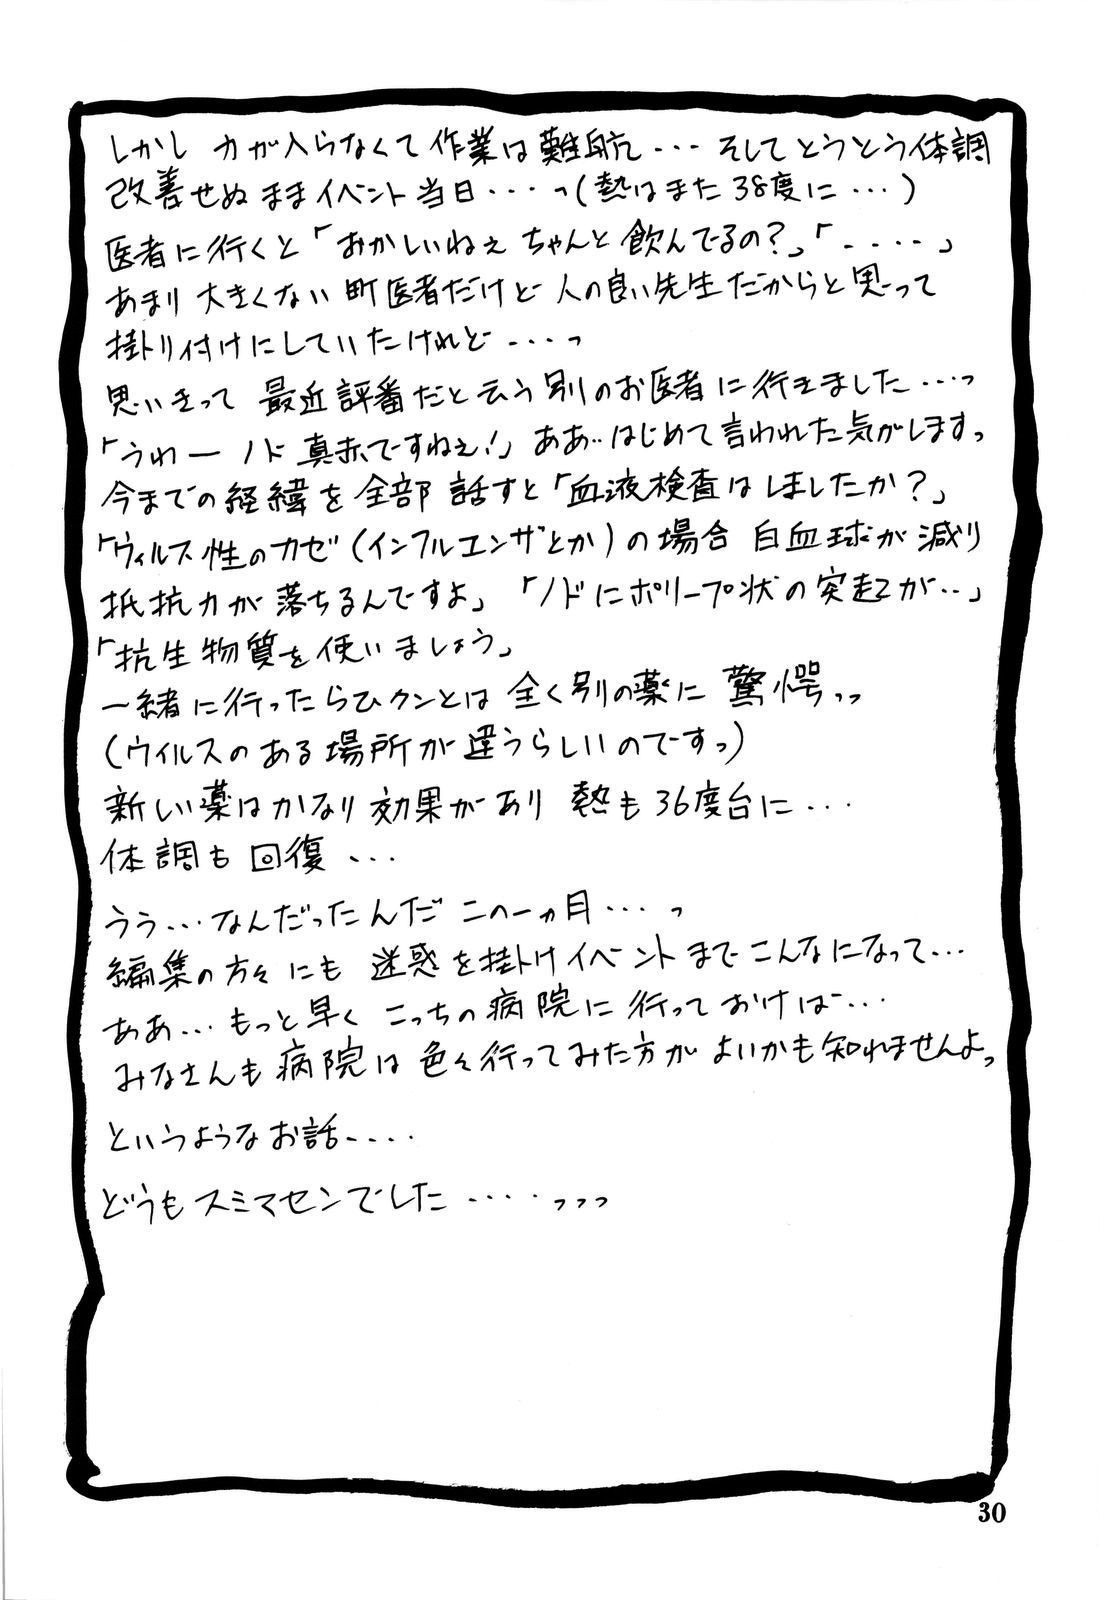 しかし 力が入らなくて作業は難航・・・ そしてとうとう体調
改善せぬままイベント当日・・・っ(熱はまた38度に・・・)
医者に行くと「おかしいねぇ ちゃんと飲んでるの?」「・・・・」
あまり大きくない町医者だけど人の良い先生だからと思って
掛トリ付けにしていたけれど・・・っ
思いきって 最近評番だと云う別のお医者に行きました・・・っ
「うわー ノド真赤ですねぇ!」ああ‥はじめて言われた気がしますっ
今までの経緯を全部話すと「血液検査はしましたか?」
「ウィルス性のカゼ(インフルエンザとか)の場合 白血球が減り
抵抗力が落ちるんですよ」「ノドにポリープ状の突起が‥」
「抗生物質を使いましょう」
一緒に行ったらひクンとは全く別の薬に驚愕っっ
(ウイルスのある場所が違うらしいのですっ)
新しい薬はかなり効果があり 熱も36度台に・・・
体調も回復・・・
うう・・・なんだったんだ この一ヵ月・・・っ
編集の方々にも 迷惑を掛けイベントまでこんなになって・・・
ああ・・・もっと早く こっちの病院に行っておけば・・・
みなさんも病院は色々行ってみた方がよいかも知れませんよっ
というようなお話・・・・
どうもスミマセンでした・・・・っっっ
30